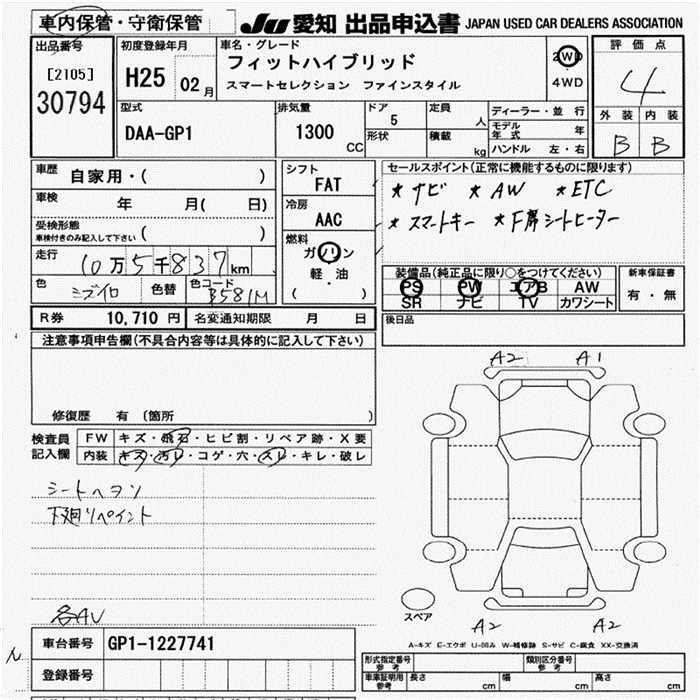 車内保管・守衛保管
JU 愛知 出品申込書 JAPAN USED CAR DEALERS ASSOCIATION
出品番号
[2105]
30794
初度登録年月
H25 02月
車名・グレード
フィットハイブリッド
スマートセレクション ファインスタイル
2WD
4WD
評価点
4
外装 内装
B B
型式
DAA-GP1
排気量
1300 CC
ドア
5
形状
定員
人
積載
kg
ディーラー・並行
モデル年式 年
ハンドル 左・右
車歴
自家用・( )
車検
年 月( 日)
受検形態
車検付きのみ記入して下さい ( )
走行
10万5千837km
色
色替
色コード
B581M
シフト
FAT
冷房
AAC
燃料
ガソリン
軽・油
( )
セールスポイント(正常に機能するものに限ります)
* ナビ * AW * ETC
* スマートキー * F席シートヒーター
装備品(純正品に限り○をつけてください)
PS PW エアB AW
SR ナビ TV カワシート
新車保証書
有・無
R券 10,710 円 名変通知期限 月 日
後日品
注意事項申告欄(不具合内容等は具体的に記入して下さい)
修復歴 有 (箇所 )
検査員記入欄
FW キズ・飛石・ヒビ割・リペア跡・X要
内装 キズ・汚レ・コゲ・穴・スレ・キレ・破レ
シートヘタリ
下廻リペイント
各AU
A2 A1
スペア
A2 A2
A-キズ E-エクボ U-凹み W-補修跡 S-サビ C-腐食 XX-交換済
車台番号 GP1-1227741
登録番号
形式指定番号 参考
類別区分番号 参考
車庫証明用 参考 長さ cm 幅 cm 高さ cm